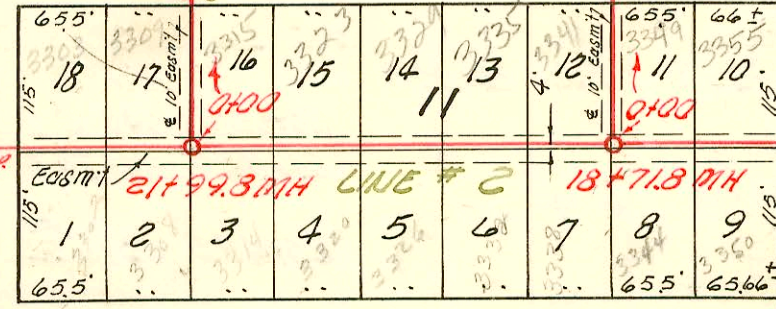 65.5' .. .. .. .. .. .. 65.5' 66±
3303 3309 3315 3323 3329 3335 3341 3349 3355
18 17 16 15 14 13 12 11 10
115' ₵ 10' Easm't 4' ₵ 10' Easm't 115'
0+00 11 0+00
Easm't 21+99.8 MH LINE # 2 18+71.8 MH
115' 1 2 3 4 5 6 7 8 9 115'
3308 3314 3320 3326 3332 3338 3344 3350
65.5' .. .. .. .. .. .. 65.5' 65.66±